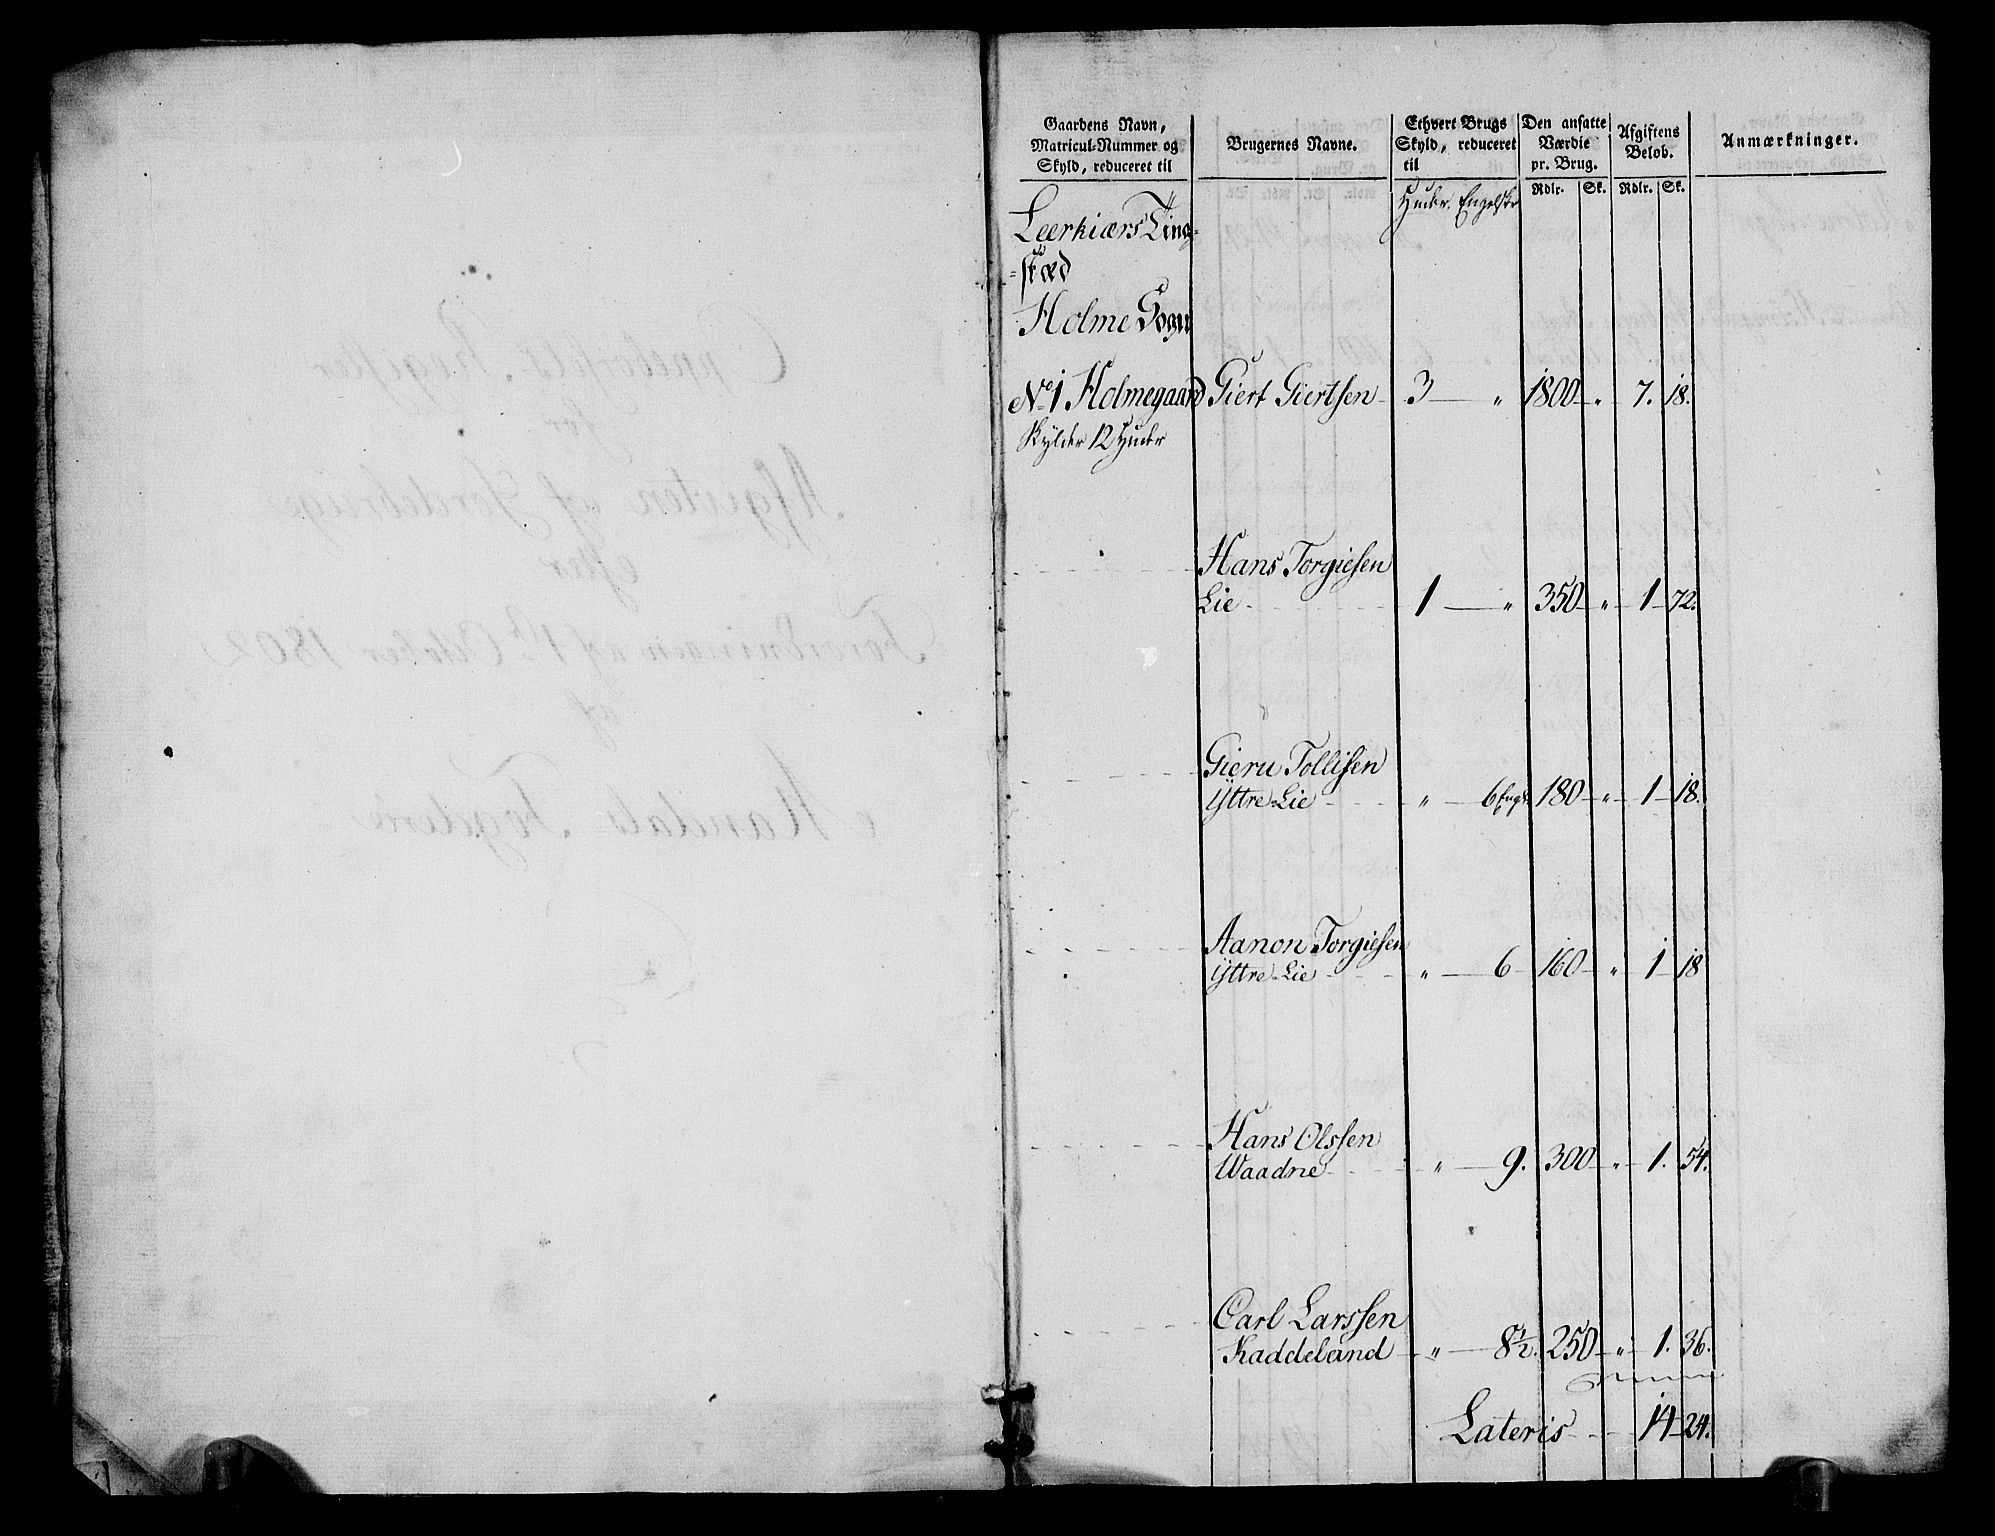 Gaardens Navn,
Matricul-Nummer og
Skyld, reduceret til
Brugernes Navne.
Ethvert Brugs
Skyld, reduceret
til
Den ansatte
Værdie
pr. Brug.
Afgiftens
Beløb.
Anmærkninger.
Huder. Engelsk
Rdlr. Sk. Rdlr. Sk.
Leerkiærs Ting-
-skæd
Holme Sogn
No 1 Holmegaard Giert Giertsen 3 — " 1800 — " 7. 18.
Skylder 12 Huder
Hans Torgiesen
Lie 1 — " 350 — " 1 — 72.
Gieru Tollisen
Yttre Lie " — 6 Engl. 180 " 1 — 18.
Aanon Torgiesen
Yttre Lie " — 6 160 — " 1 — 18
Hans Olssen
Waadne " — 9. 300 — " 1. 54.
Carl Larssen
Kaddeland " — 8½. 250 — " 1. 36.
Lateris 14 — 24.
Oppebørsels Register
for
Afgivten af Jordebruget
efter
Forordningen af 1te October 1802
af
Mandals Fogderie